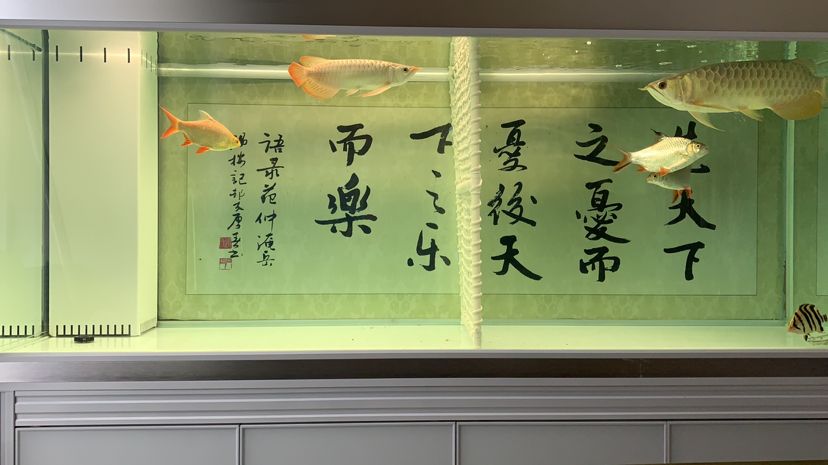 先天下
之憂而
憂後天
下之乐
而樂
語录范仲淹岳
楼記